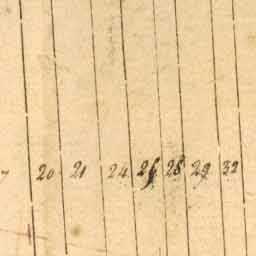 20 21 24 26 28 29 32